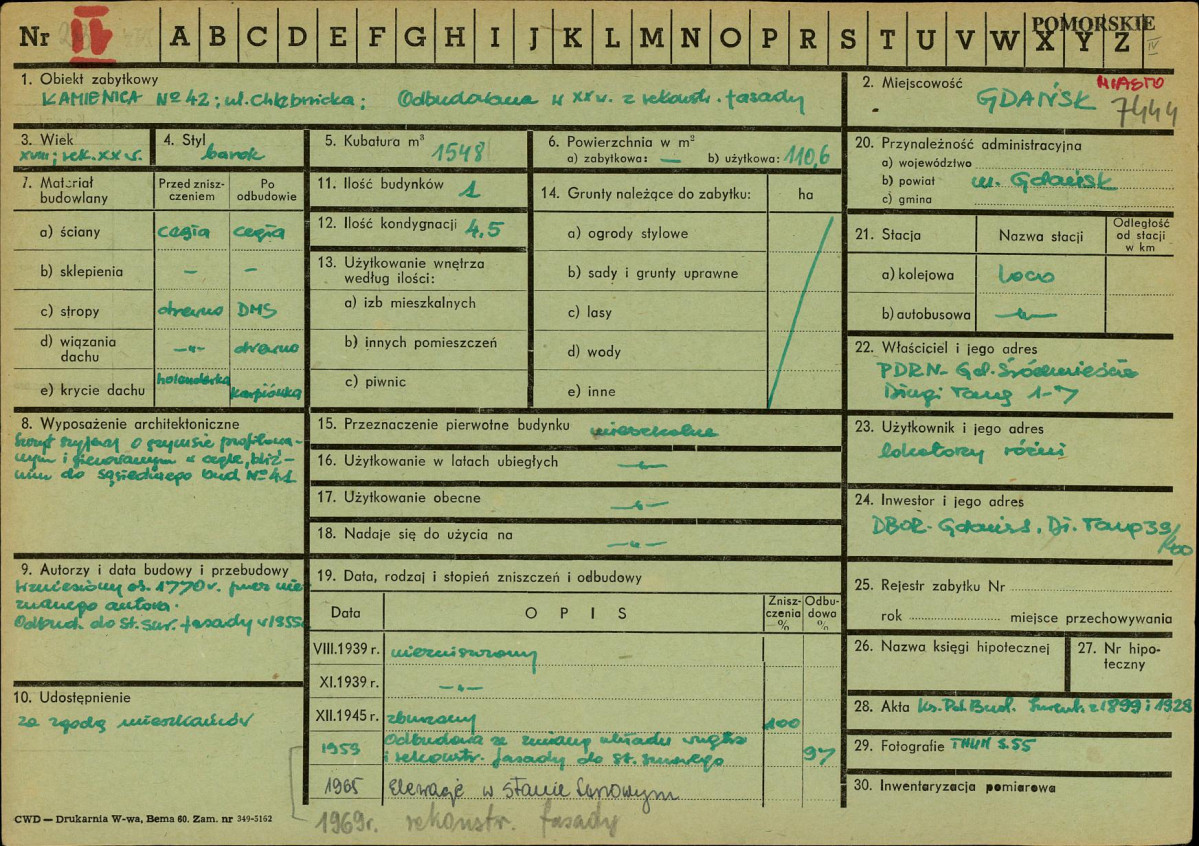 POMORSKIE
Nr II A B C D E F G H I J K L M N O P R S T U V W X Y Z IV
1. Obiekt zabytkowy
KAMIENICA № 42; ul. Chlebnicka; Odbudowana w XX w. z rekonstr. fasady
2. Miejscowość
MIASTO
GDAŃSK 7444
3. Wiek
XVIII; rek. XX w.
4. Styl
barok
5. Kubatura m³
1548
6. Powierzchnia w m²
a) zabytkowa: — b) użytkowa: 110,6
7. Materiał budowlany
Przed zniszczeniem
Po odbudowie
a) ściany cegła cegła
b) sklepienia — —
c) stropy drewno DMS
d) wiązania dachu —„— drewno
e) krycie dachu holenderka karpiówka
8. Wyposażenie architektoniczne
Szczyt szyjowy o gzymsie profilowa-
nym i
do sąsiedniego bud № 41
9. Autorzy i data budowy i przebudowy
Wzniesiony ok. 1770 r. przez nie
znanego autora.
Odbud. do st. sur. fasady w 1955
10. Udostępnienie
za zgodą mieszkańców
11. Ilość budynków 1
12. Ilość kondygnacji 4.5
13. Użytkowanie wnętrza
według ilości:
a) izb mieszkalnych
b) innych pomieszczeń
c) piwnic
14. Grunty należące do zabytku: ha
a) ogrody stylowe
b) sady i grunty uprawne
c) lasy
d) wody
e) inne
15. Przeznaczenie pierwotne budynku mieszkalne
16. Użytkowanie w latach ubiegłych —„—
17. Użytkowanie obecne —„—
18. Nadaje się do użycia na —„—
19. Data, rodzaj i stopień zniszczeń i odbudowy
Data OPIS Zniszczenia % Odbudowa %
VIII.1939 r. niezniszczony
XI.1939 r. —„—
XII.1945 r. zburzony 100
1953 Odbudowa ze zmianą układu wnętrz
i rekonstr. fasady do st. surowego 97
1965 Elewacje w stanie surowym
1969 r. rekonstr. fasady
20. Przynależność administracyjna
a) województwo
b) powiat m. Gdańsk
c) gmina
21. Stacja Nazwa stacji Odległość od stacji w km
a) kolejowa loco
b) autobusowa —„—
22. Właściciel i jego adres
PDRN - Gd. Śródmieście
Długi Targ 1-7
23. Użytkownik i jego adres
lokatorzy różni
24. Inwestor i jego adres
DBOR - Gdańsk, Dł. Targ 39/40
25. Rejestr zabytku Nr
rok miejsce przechowywania
26. Nazwa księgi hipotecznej
27. Nr hipo-
teczny
28. Akta Ks. Pol. Bud. Inwent. z 1899 i 1928
29. Fotografie
30. Inwentaryzacja pomiarowa
CWD — Drukarnia W-wa, Bema 60. Zam. nr 349-5162